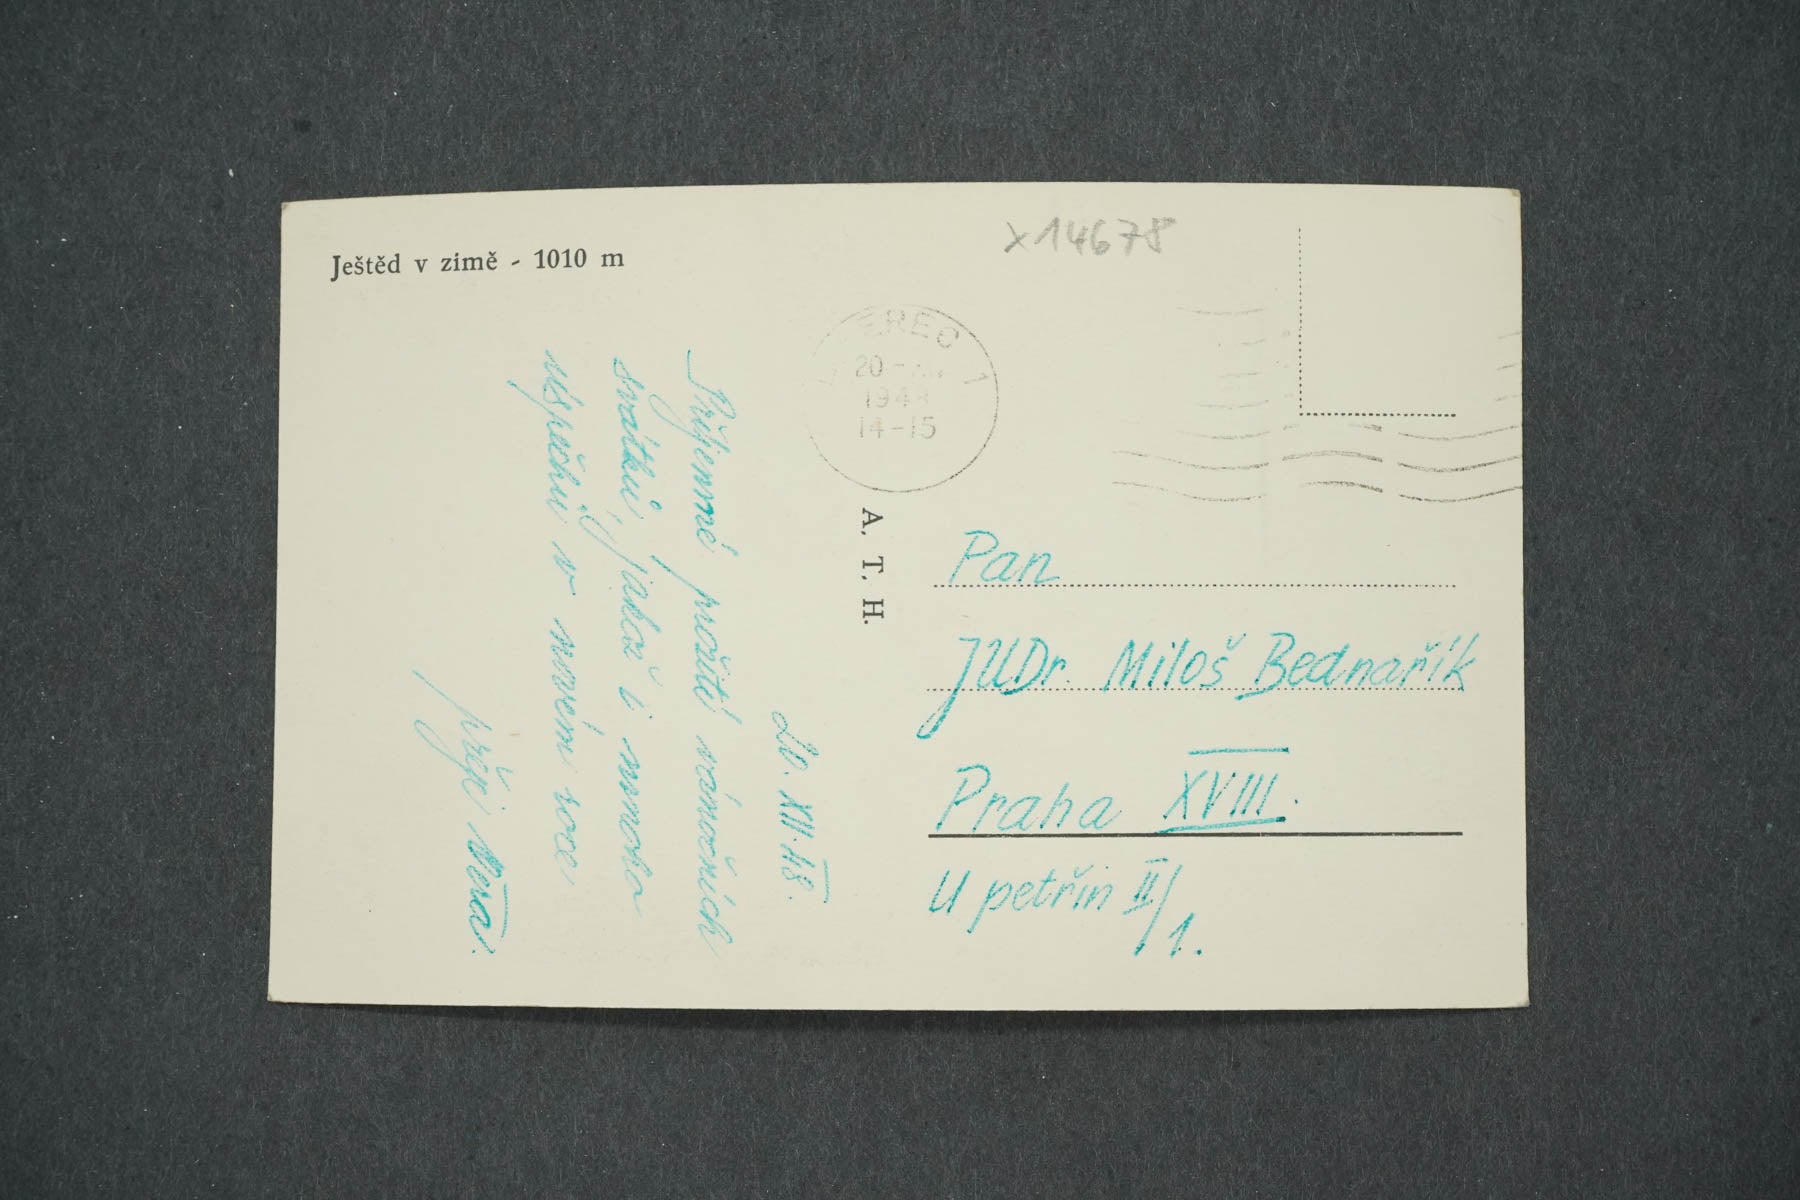 Ještěd v zimě - 1010 m
x14678
EREC 1
20 -
1948
14-15
A. T. H.
20. XII. 48.
Příjemné prožití vánočních
svátků, jakož i mnoho
úspěchů v novém roce,
přeje Věra.
Pan
JUDr. Miloš Bednařík
Praha XVIII.
U petřin II/1.